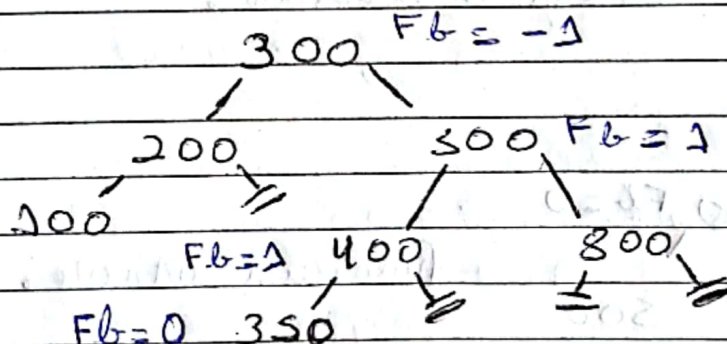 300 Fb = -1
200 500 Fb = 1
100 Fb=1 400 800
Fb=0 350